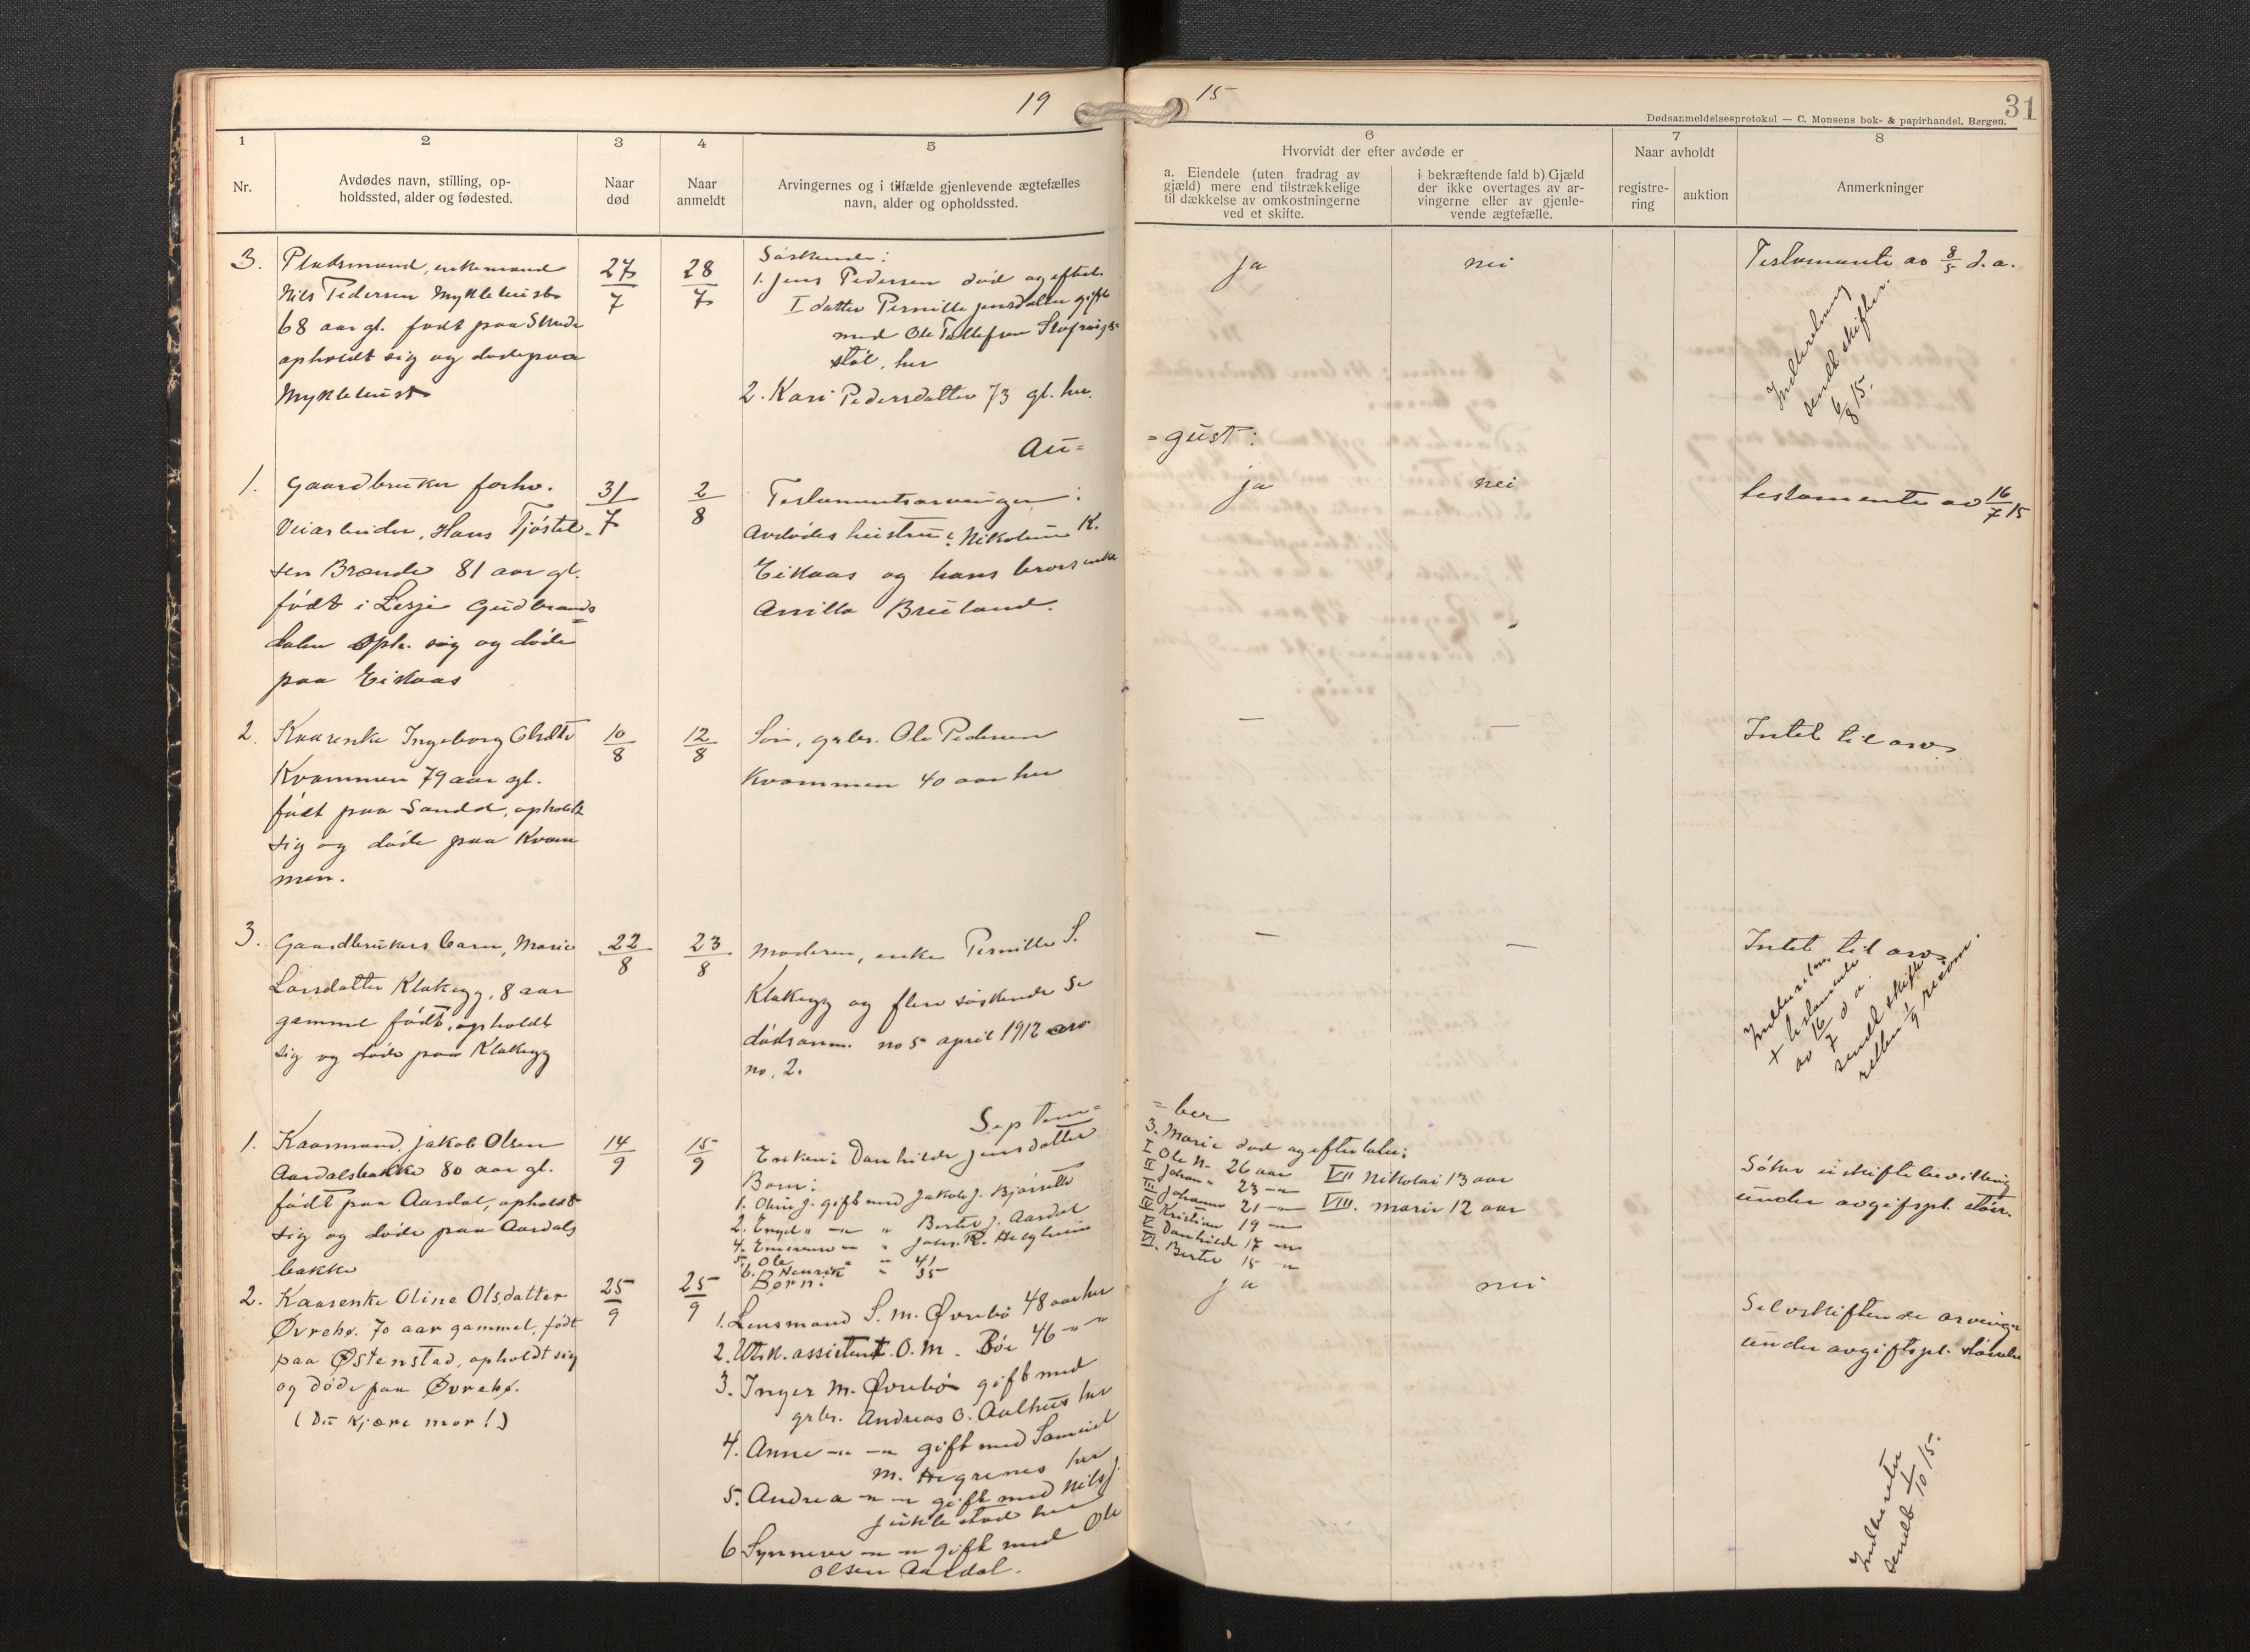 19
15
31
Dødsanmeldelsesprotokol — C. Monsens bok- & papirhandel, Bergen.
1
2
3
4
5
6
7
8
Nr.
Avdødes navn, stilling, op-
holdssted, alder og fødested.
Naar
død
Naar
anmeldt
Arvingernes og i tilfælde gjenlevende ægtefælles
navn, alder og opholdssted.
Hvorvidt der efter avdøde er
a. Eiendele (uten fradrag av
gjæld) mere end tilstrækkelige
til dækkelse av omkostningerne
ved et skifte.
i bekræftende fald b) Gjæld
der ikke overtages av ar-
vingerne eller av gjenle-
vende ægtefælle.
Naar avholdt
registre-
ring
auktion
Anmerkninger
3.
Pladsmand, enkemand
Nils Pedersen Myklebust
68 aar gl. født paa
opholdt sig og døde paa
Myklebust
27/7
28/7
Søskende:
1. Jens Pedersen død og efterl.
I datter Pernille Jensdatter gift
med Ole Tollefsen
støl, her
2. Kari Pedersdatter 73 gl. her.
ja
nei
Testamente av 8/5 d.a.
Indberetning
sendt skifter.
6/8 15.
Au=
=gust:
1.
Gaardbruker forhv.
Veiarbeider, Hans Tjøstel-
sen Brænde 81 aar gl.
født i Lesje Gudbrands=
dalen oph. sig og døde
paa Eikaas
31/7
2/8
Testamentsarvinger:
Avdødes hustru: Nikoline K.
Eikaas og hans brors enke
Anilla Breiland.
ja
nei
testamente av 16/7 15
2.
Kaarenke Ingeborg Olsdtr
Kvammen 79 aar gl.
født paa Sandal, opholdt
sig og døde paa Kvam
men.
10/8
12/8
Søn, grbr. Ole Pedersen
Kvammen 40 aar her
—
—
Intet til arv.
3.
Gaardbrukers barn, Marie
Larsdatter Klakegg, 8 aar
gammel født, opholdt
sig og døde paa Klakegg
22/8
23/8
Moderen, enke Pernille S.
Klakegg og flere søskende se
dødsanm. no 5 april 1912
no. 2.
—
—
Intet til arv.
Indberetn.
+ testamente
av 16/7 d a.
sendt skifte
retten 1/9
Septem=
=ber
1.
Kaarmand, Jakob Olsen
Aardalsbakke 80 aar gl.
født paa Aardal, opholdt
sig og døde paa Aardals
bakke
14/9
15/9
Enken: Danhilde Jensdatter
Børn:
1. Oline J. gift med Jakob J. Bjørsett
2. Engel " -"- " Berter J. Aardal
4. -"- " Johs. R. Helgheim
5. Ole " " 41
6. Henrik " 35
3. Marie død og efterlater:
I Ole N. 26 aar
II Johan " 23 -"-
III Johanne 21 -"-
IV Kristian 19 -"-
V Danhilde 17 -"-
VI. Berter 15 -"-
VII Nikolai 13 aar
VIII. Marie 12 aar
Søker uskiftebevilling
under avgifspl. størr.
2.
Kaarenke Oline Olsdatter
Øvrebø. 70 aar gammel, født
paa Østenstad, opholdt sig
og døde paa Øvrebø.
(Du kjære mor!)
25/9
25/9
Børn:
1. Lensmand S. M. Øvrebø 48 aar her
2. Utsk. assistent O. M. Bøe 46 -"-"
3. Inger M. Øvrebø gift med
grbr. Andreas O. Aalhus her
4. Anne -"- -"- gift med Samuel
M. Hegrenes her
5. Andrea -"- -"- gift med Nils J.
Juklestad her
6 Synneve -"- -"- gift med Ole
Olsen Aardal.
ja
nei
Selvskiftende arvinger
under avgiftspl. størrelse
Indberetn
sendt 1/10 15.